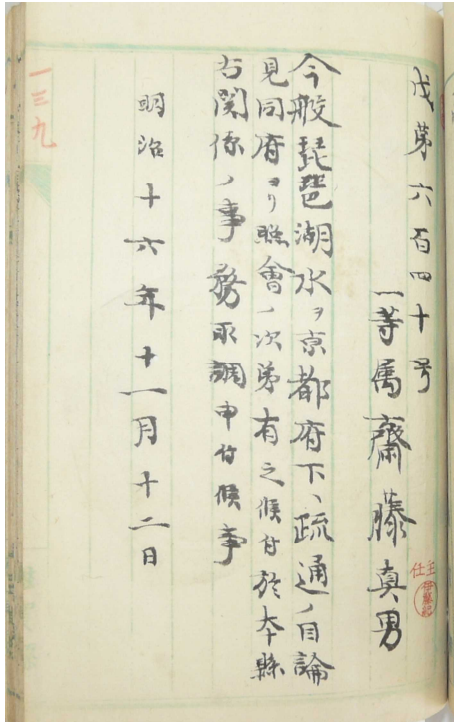 戊第六百四十号
一等属齋藤真男
主任
今般琵琶湖水ヲ京都府下ヘ疏通ノ目論
見同府ヨリ照會ノ次第有之候付於本縣
右関係ノ事務取調申付候事
明治十六年十一月十二日
一三九